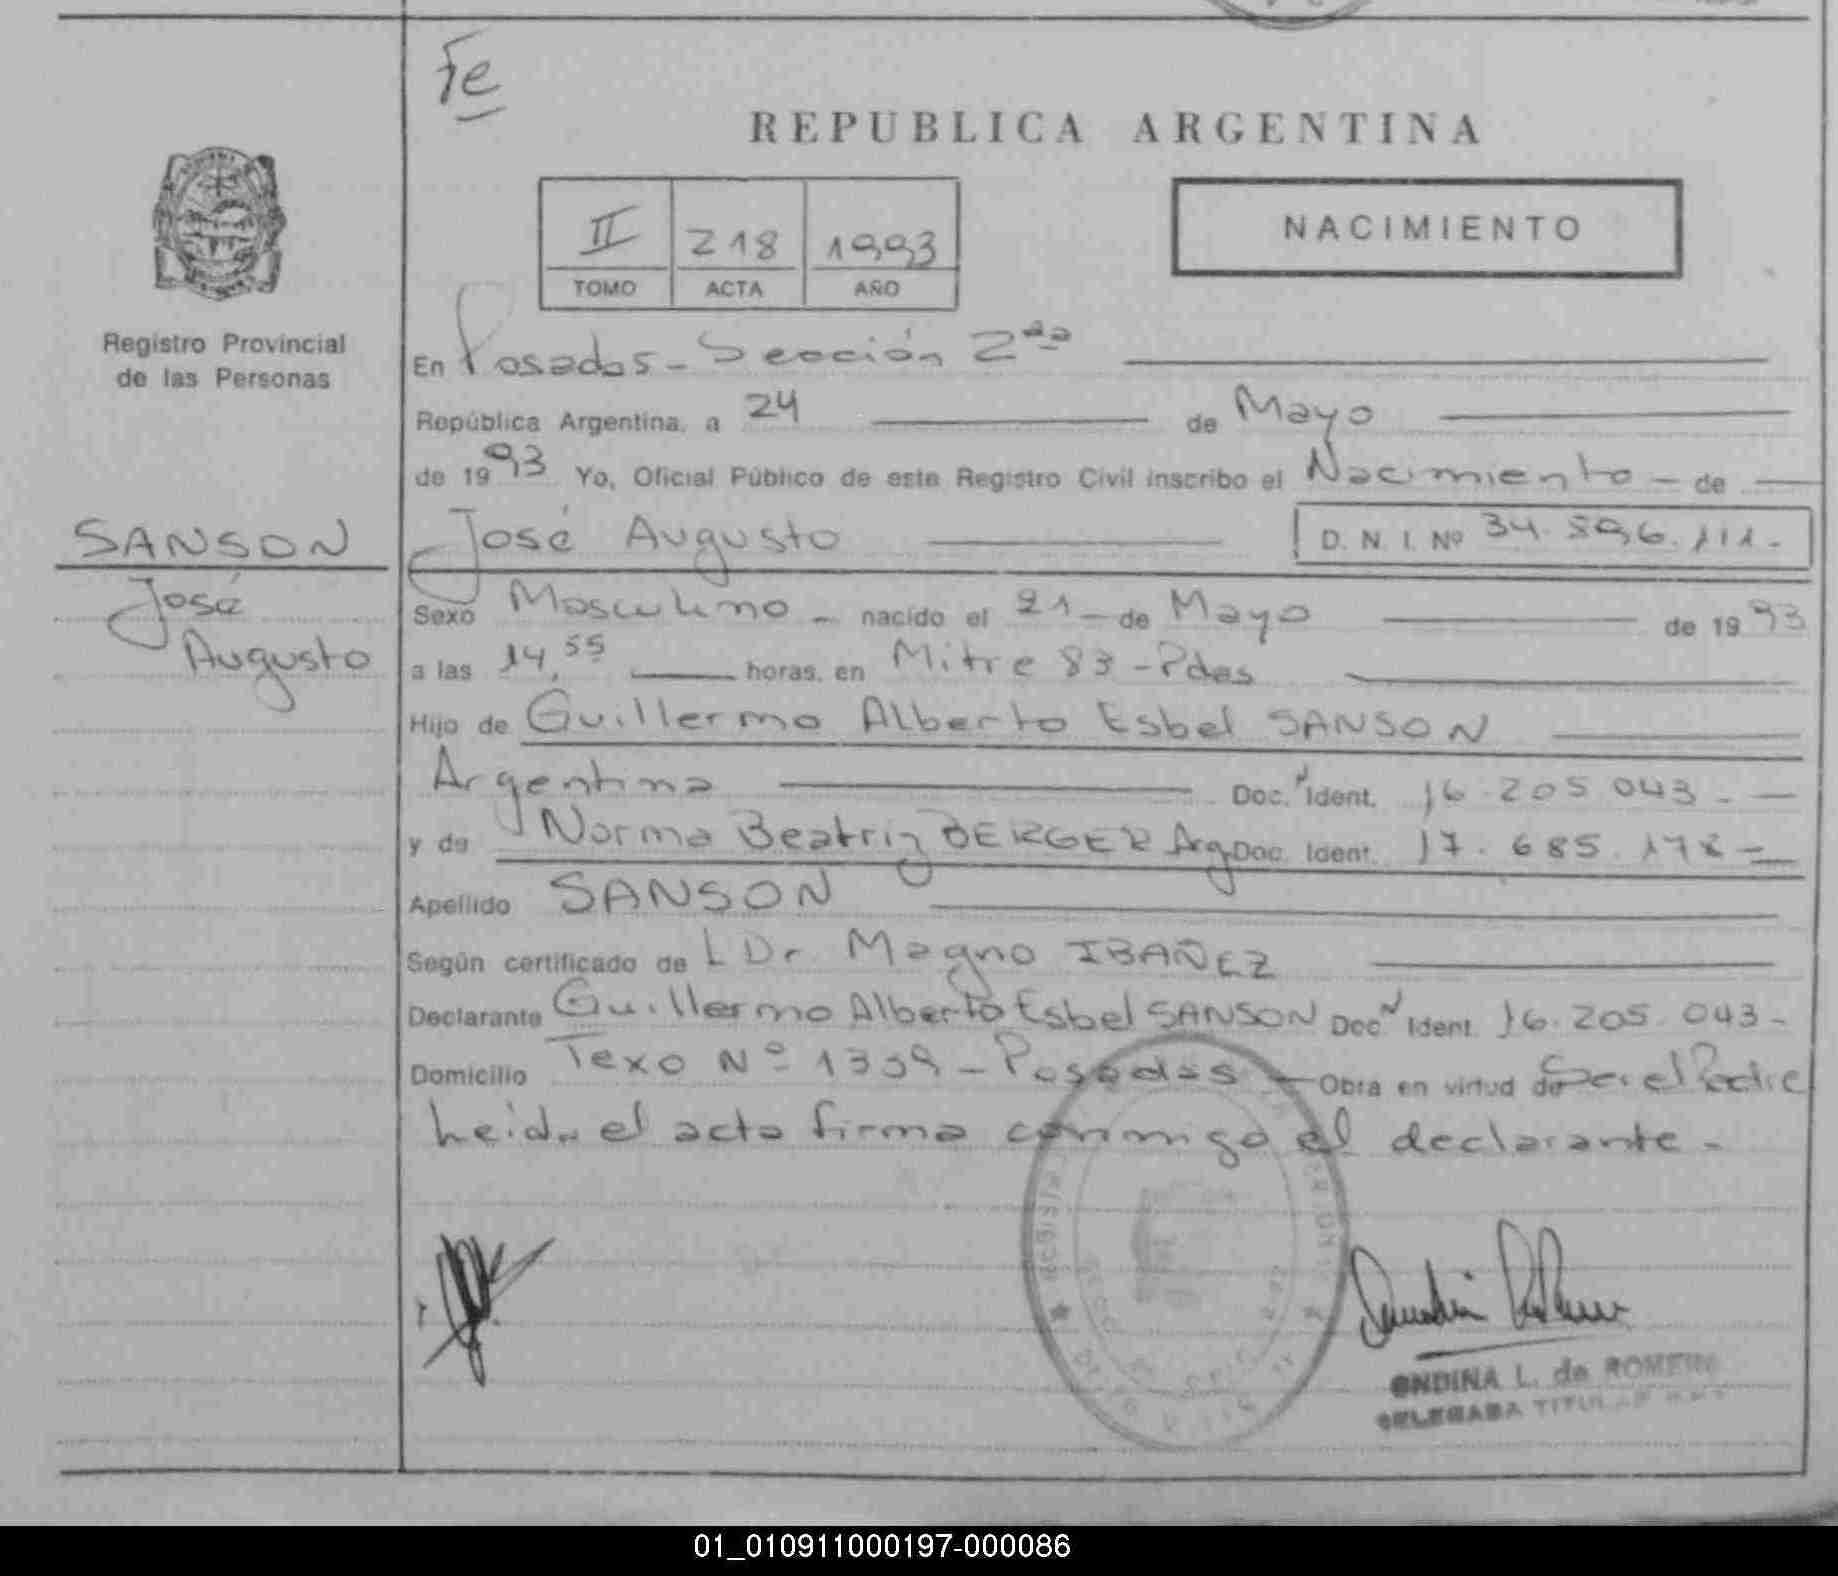 Fe
REPUBLICA ARGENTINA
II 218 1993
TOMO ACTA AÑO
NACIMIENTO
Registro Provincial
de las Personas
En Posadas - Sección 2da
República Argentina, a 24 de Mayo
de 1993 Yo, Oficial Público de este Registro Civil inscribo el Nacimiento - de
SANSON
José
Augusto
José Augusto D. N. I. Nº 34.896.111.-
Sexo Masculino - nacido el 21 - de Mayo de 1993
a las 14,55 horas, en Mitre 83 - Pdas
Hijo de Guillermo Alberto Esbel SANSON
Argentina Doc. Ident. 16.205.043.-
y de Norma Beatriz BERGER Arg Doc. Ident. 17.685.178 -
Apellido SANSON
Según certificado de L Dr. Magno IBAÑEZ
Declarante Guillermo Alberto Esbel SANSON Doc. Ident. 16.205.043-
Domicilio Texo Nº 1339 - Posadas - Obra en virtud de Ser el Padre
Leida el acta firma conmigo el declarante -
ONDINA L. de ROMERO
DELEGADA TITULAR
01_010911000197-000086